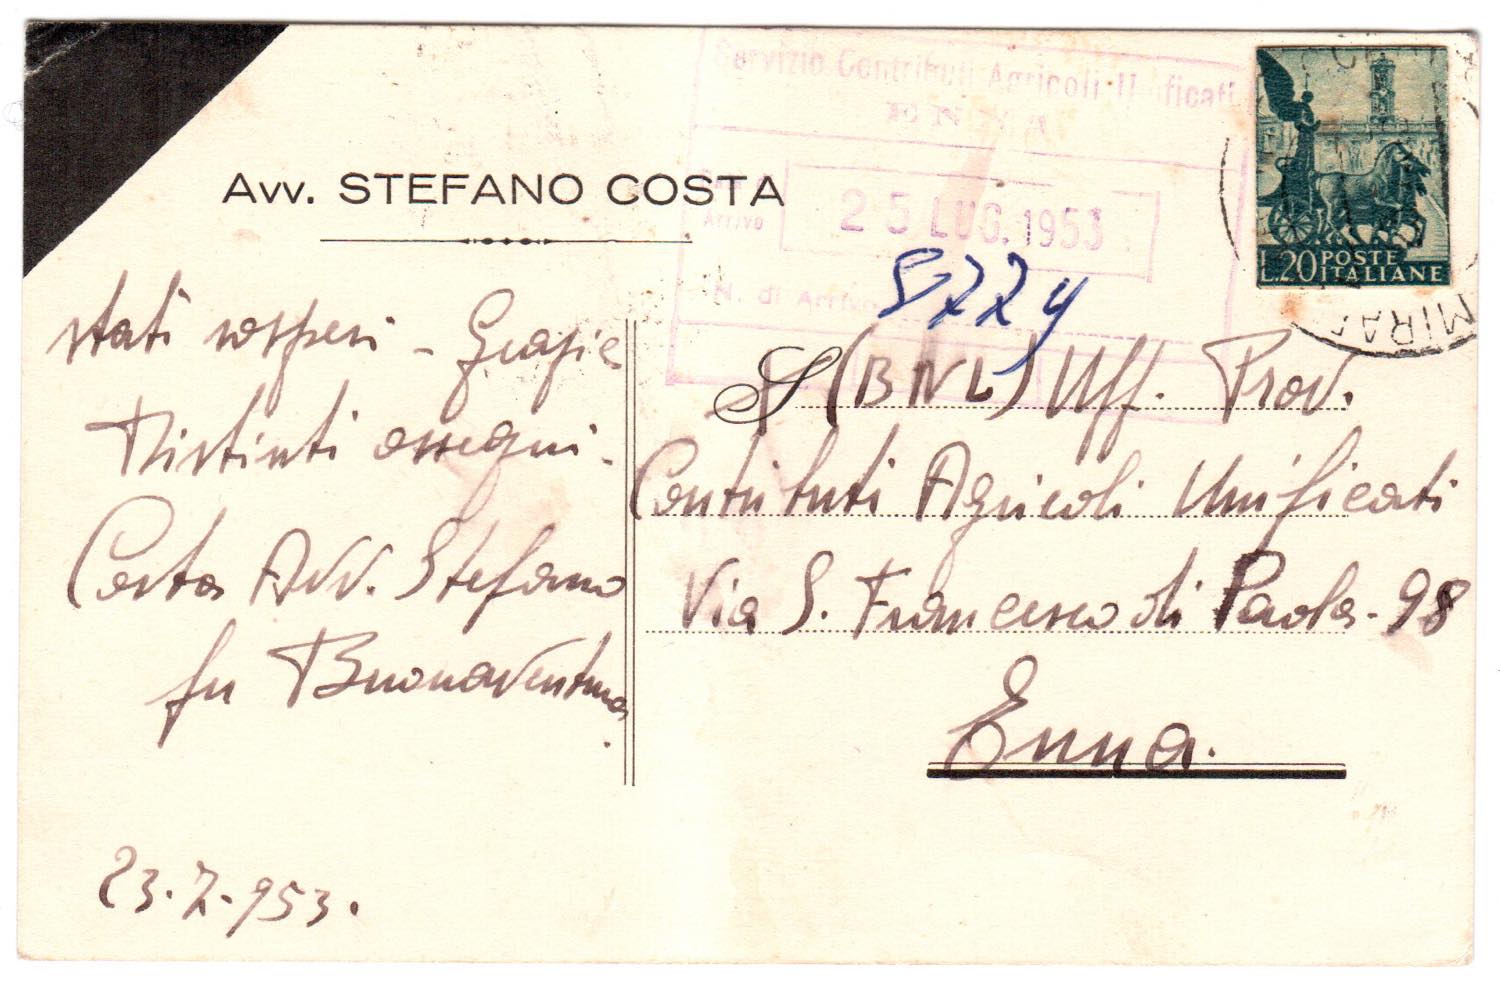 Servizio Contributi Agricoli Unificati
ENNA
Avv. STEFANO COSTA
Arrivo
25 LUG. 1953
N. di Arrivo
L.20 POSTE
ITALIANE
MIRA
stati sospesi - Grazie
Distinti ossequi -
Costa Avv. Stefano
fu Buonaventura
.
23.7.953.
S (BNL) Uff. Prov.
Contributi Agricoli Unificati
Via S. Francesco di Paola - 98
Enna.